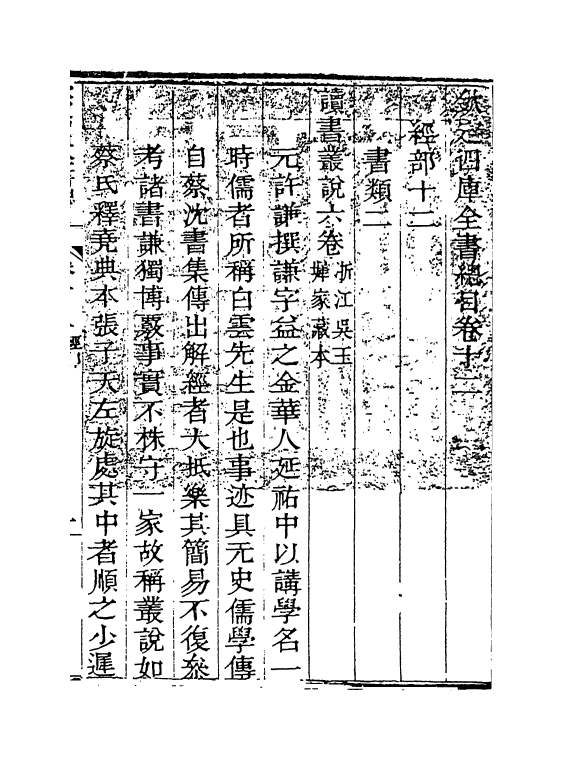 欽定四庫全書總目卷十二
經部十二
書類二
讀書叢說六卷浙江吳玉
墀家藏本
元許謙撰謙字益之金華人延祐中以講學名一
時儒者所稱白雲先生是也事迹具元史儒學傳
自蔡沈書集傳出解經者大抵樂其簡易不復叅
考諸書謙獨博覈事實不株守一家故稱叢說如
蔡氏釋堯典本張子天左旋處其中者順之少遲